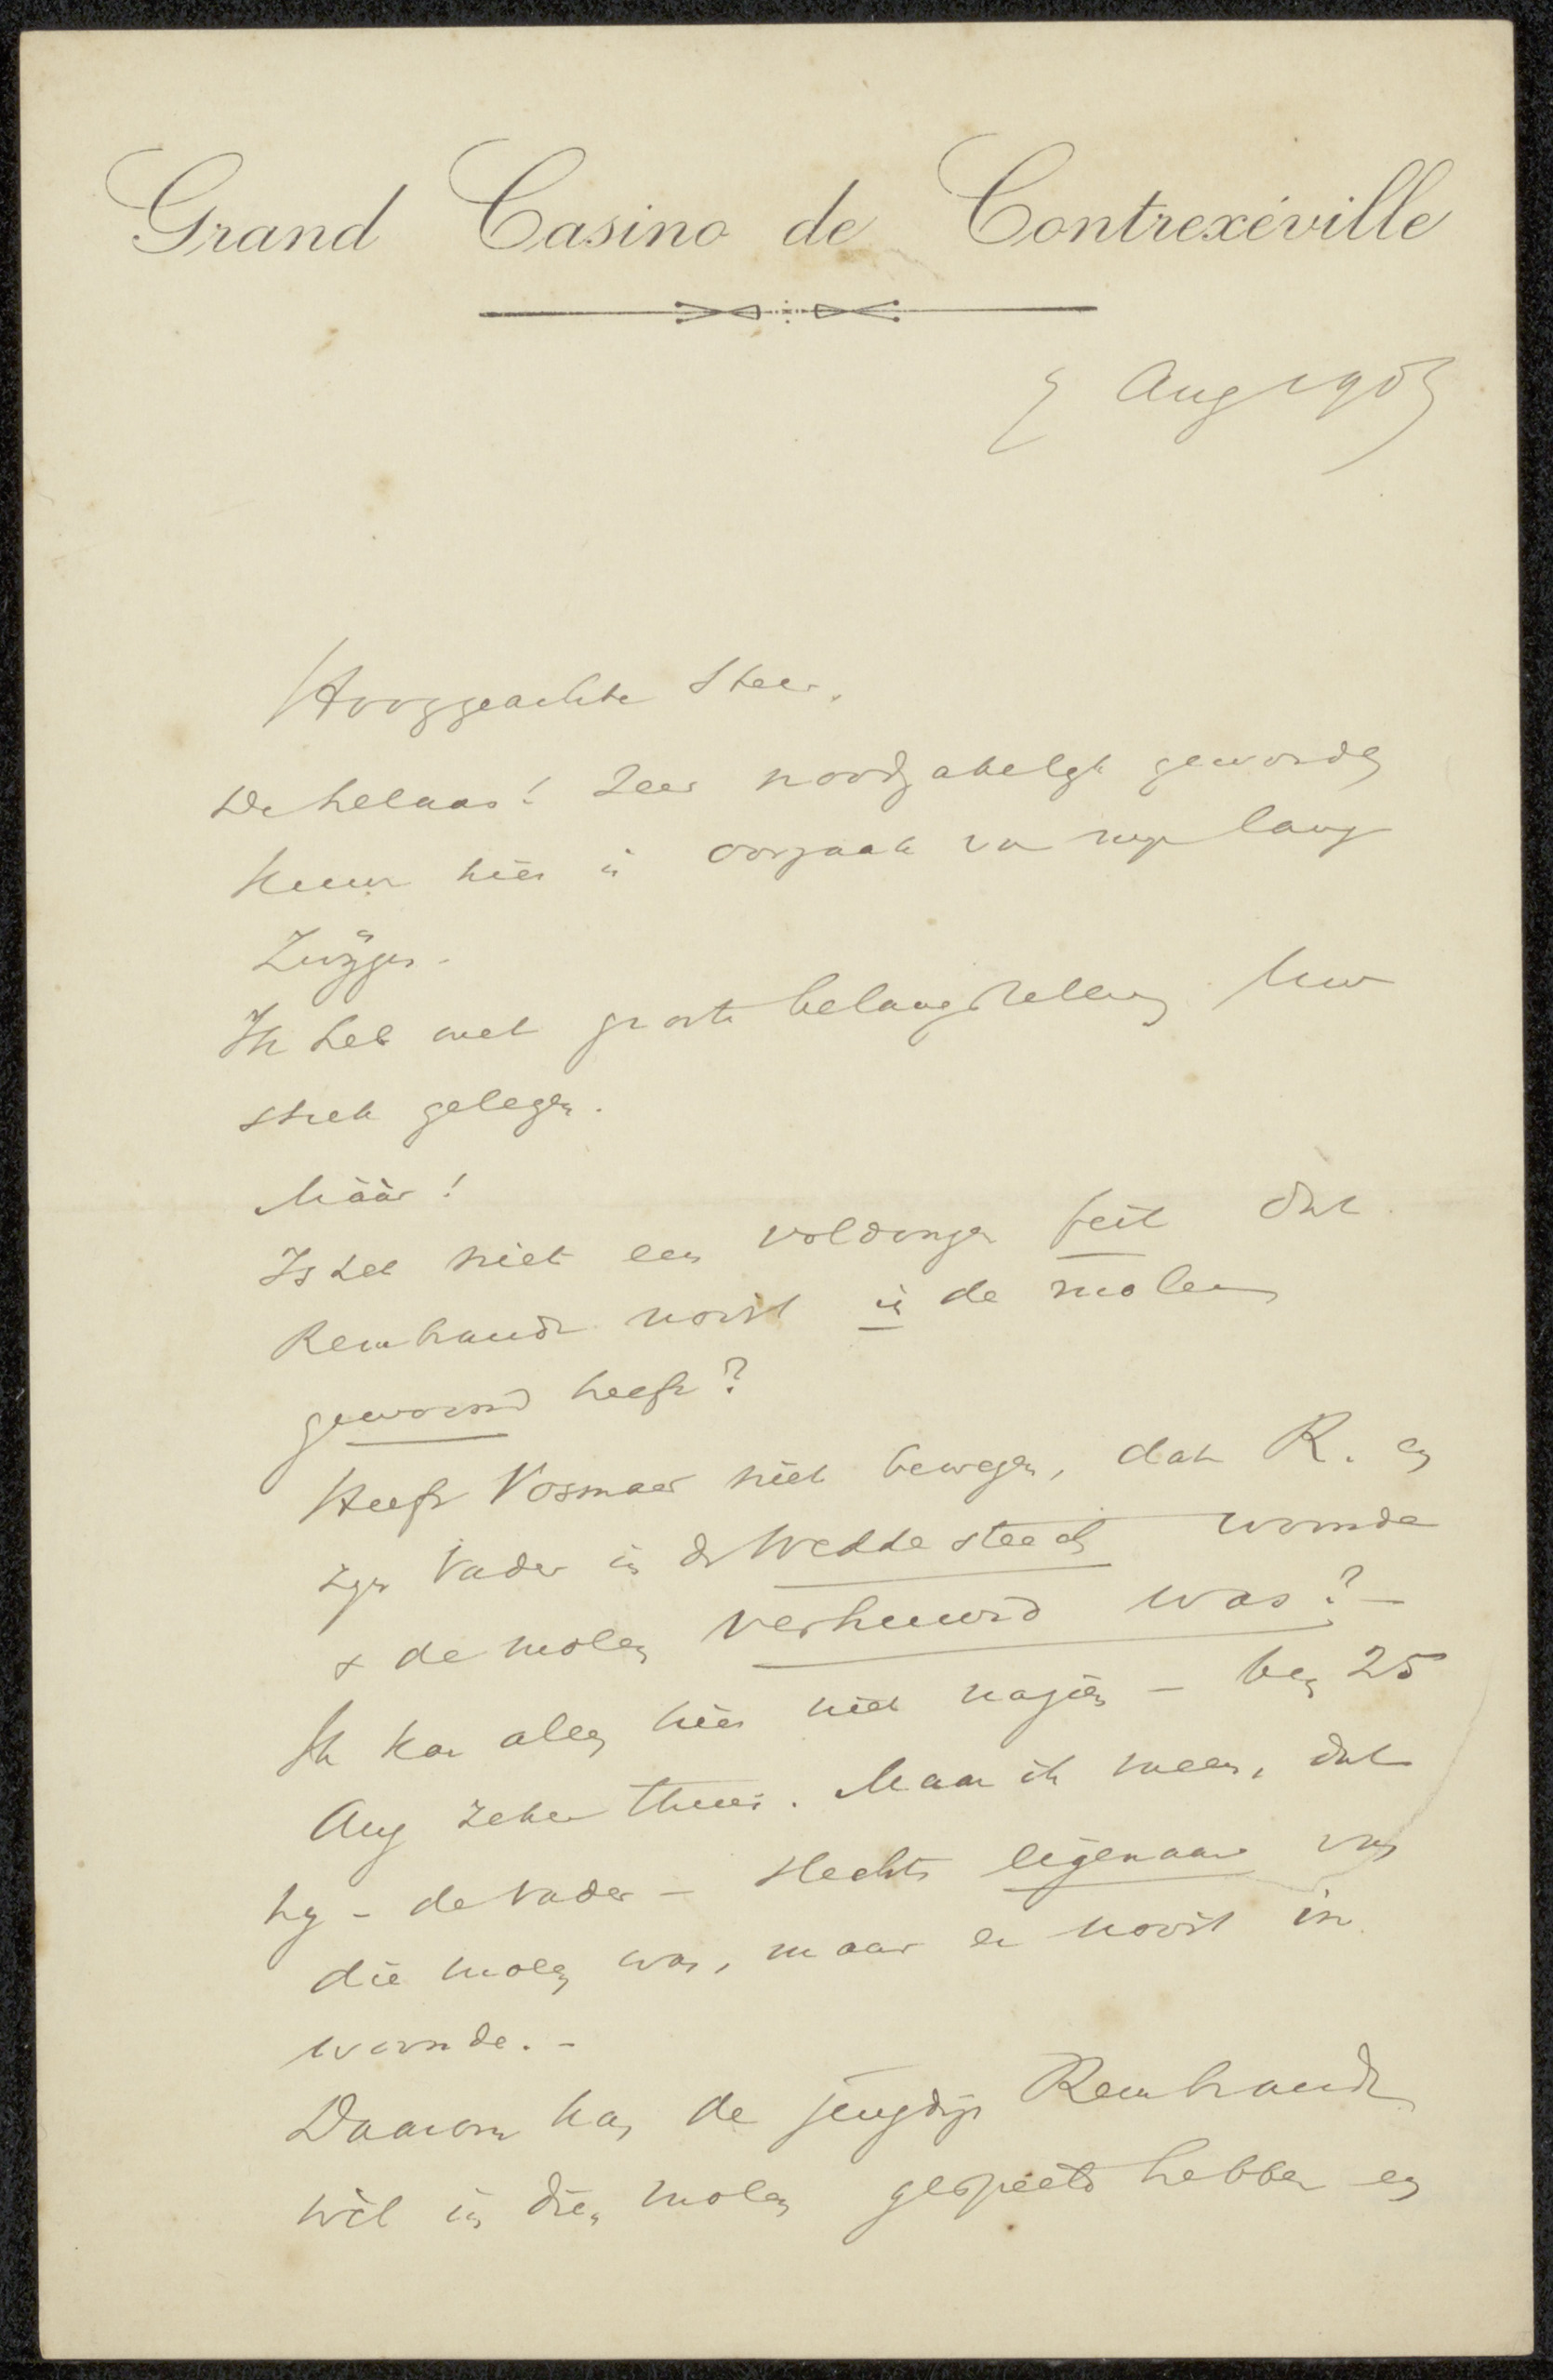 Grand Casino de Contrexéville
Aug 190
Hooggeachte Heer,
De helaas! Zeer noodzakelijk geworden
kuur hier is oorzaak van mijn lang
Zwijgen.
Ik heb met groote belangstelling Uw
stuk gelezen.
Máár!
Is het niet een voldongen feit dat
Rembrandt nooit in de molen
gewoond heeft?
Heeft Vosmaer niet bewezen, dat R. en
zijn Vader in de Weddesteeg woonde
& de molen verhuurd was? -
Ik kan alles hier niet nazien - ben 25
Aug zeker thuis. Maar ik meen, dat
hij - de Vader - slechts eigenaar van
die molen was, maar er nooit in
woonde. -
Daarom kan de jeugdige Rembrandt
wel in dien molen gespeeld hebben en